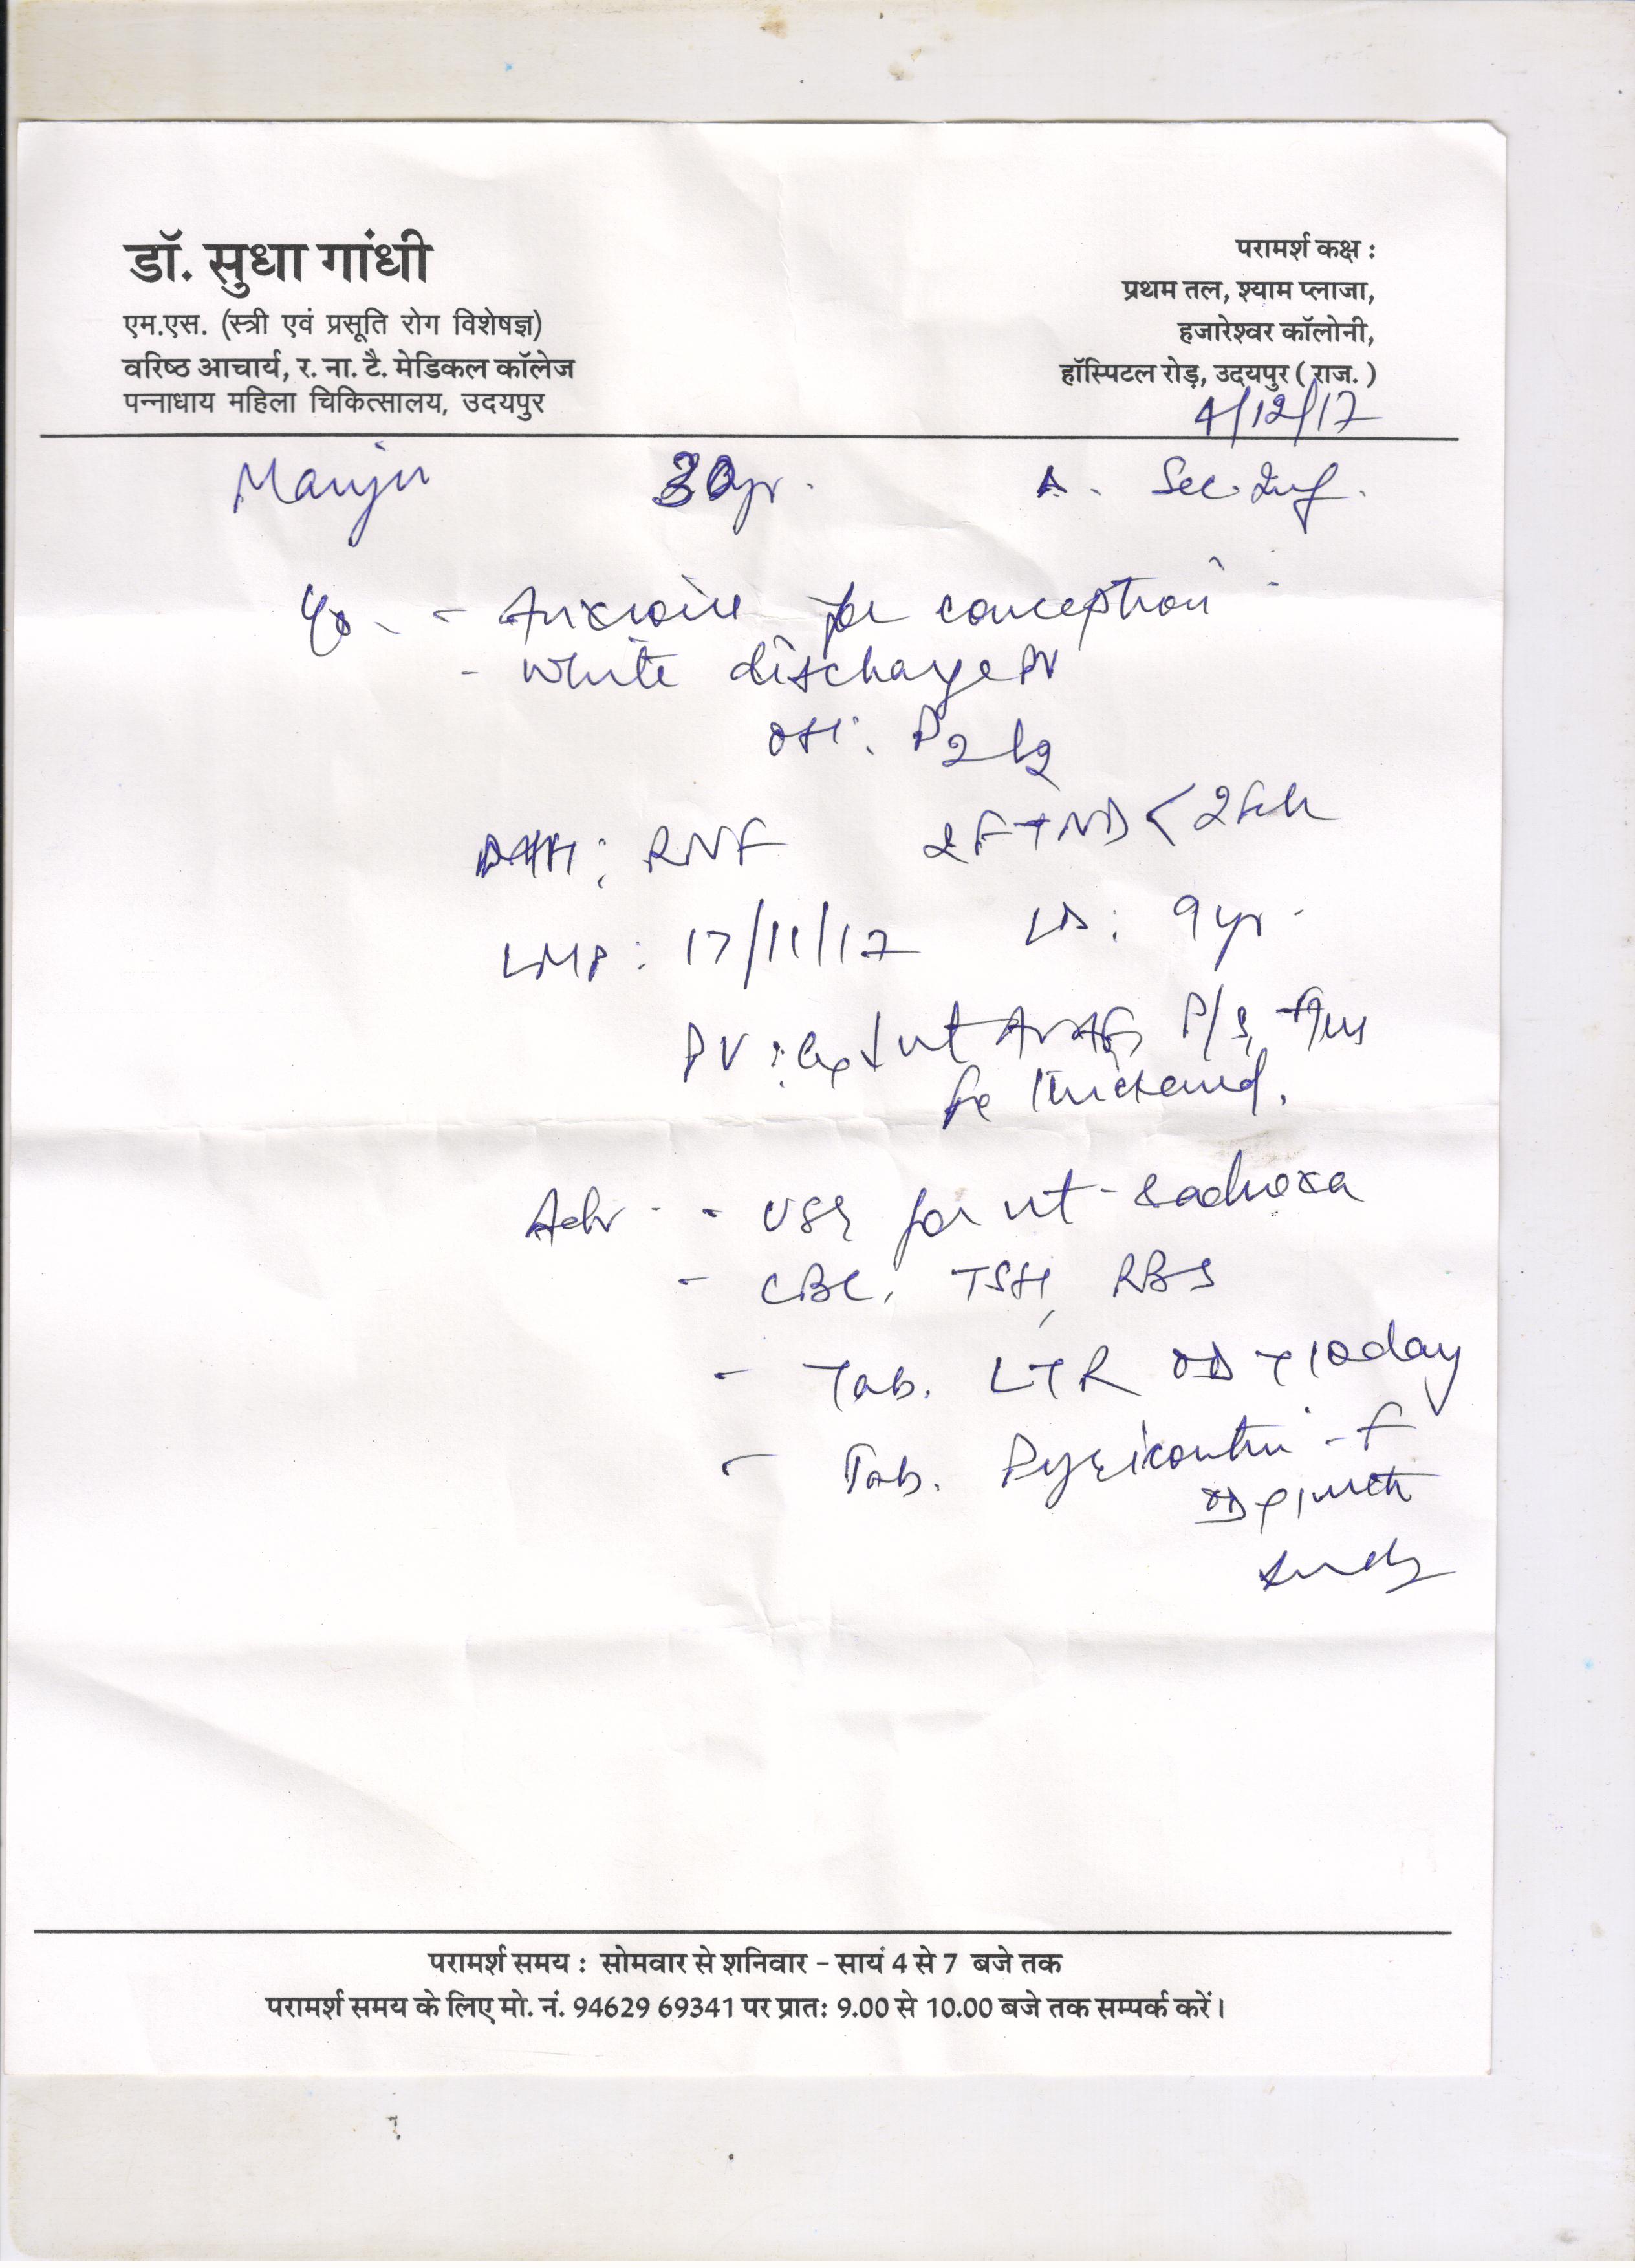 डॉ. सुधा गांधी
एम.एस. (स्त्री एवं प्रसूति रोग विशेषज्ञ)
वरिष्ठ आचार्य, र. ना. टै. मेडिकल कॉलेज
पन्नाधाय महिला चिकित्सालय, उदयपुर
परामर्श कक्ष :
प्रथम तल, श्याम प्लाजा,
हजारेश्वर कॉलोनी,
हॉस्पिटल रोड़, उदयपुर ( राज. )
4/12/17
Manju 30yr. Sec. Inf.
C/o - Anxious for conception
- White discharge PV
OH: P2L2
RNF 2FTND < 2
LMP: 17/11/17 LD: 9yr.
PV: Cx ut AVAF P/S
thickened.
Adv - USG for ut - & adnexa
- CBC, TSH, RBS
- Tab. LTR OD x 10day
- Tab. Pyricontin - F
OD x 1mth
परामर्श समय : सोमवार से शनिवार – सायं 4 से 7 बजे तक
परामर्श समय के लिए मो. नं. 94629 69341 पर प्रातः 9.00 से 10.00 बजे तक सम्पर्क करें।